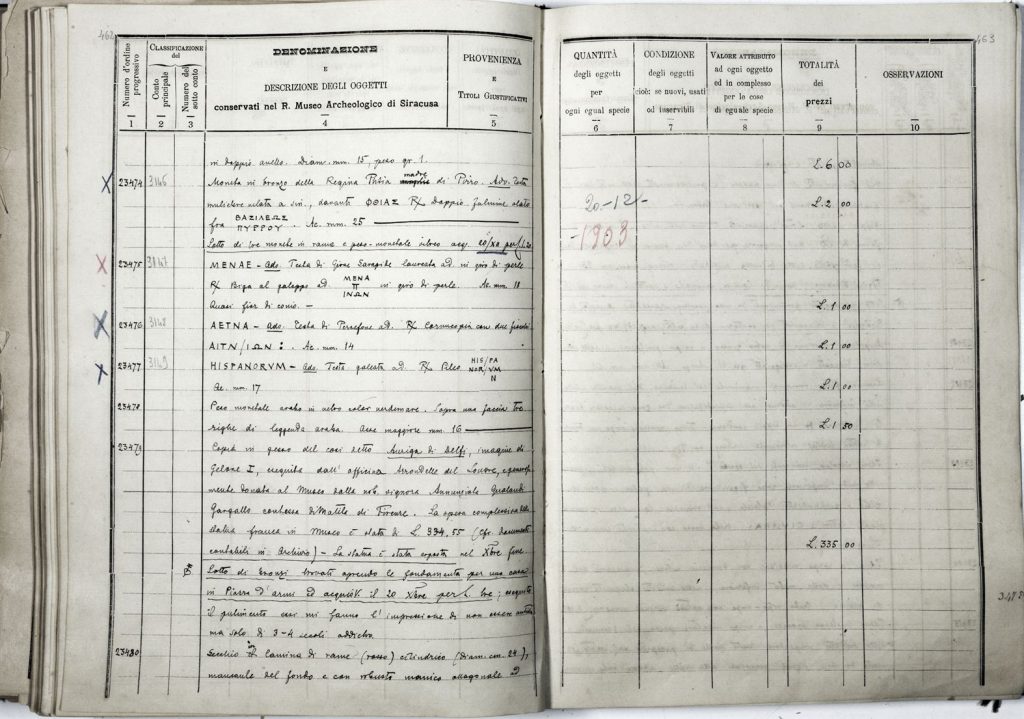 462
463
Numero d'ordine progressivo
CLASSIFICAZIONE
del
Conto principale
Numero del sotto conto
DENOMINAZIONE
E
DESCRIZIONE DEGLI OGGETTI
conservati nel R. Museo Archeologico di Siracusa
PROVENIENZA
E
TITOLI GIUSTIFICATIVI
QUANTITÀ
degli oggetti
per
ogni egual specie
CONDIZIONE
degli oggetti
cioè: se nuovi, usati
od inservibili
VALORE ATTRIBUITO
ad ogni oggetto
ed in complesso
per le cose
di eguale specie
TOTALITÀ
dei
prezzi
OSSERVAZIONI
1 2 3 4 5 6 7 8 9 10
in doppio anello. Diam. mm. 15, peso gr. 1. L. 6 00
X 23474 3146 Moneta in bronzo della Regina Phtia madre di Pirro. Adv. Testa
muliebre velata a sin., davanti ΦΘΙΑΣ R/ Doppio fulmine alato L. 2 00
fra ΒΑΣΙΛΕΩΣ ΠΥΡΡΟΥ. Ae. mm. 25
20-12-
1903
Lotto di tre monete in rame e peso-monetale vitreo acq.
X 23475 3147 MENAE - Ads. Testa di Giove Serapide laureata a d. in giro di perle
R/ Biga al galoppo a d. ΜΕΝΑ Π ΙΝΩΝ in giro di perle. Ae. mm. 18
Quasi fior di conio. - L. 1 00
X 23476 3148 AETNA - Ads. Testa di Persefone a d. R/ Cornucopia con due
AITN/IΩN : . Ae. mm. 14 L. 1 00
X 23477 3149 HISPANORVM - Ads. Testa galeata a d. R/ Pileo HIS/PA NOR/VM N
Ae. mm. 17 L. 1 00
23478 Peso monetale arabo in vetro color verdemare. Sopra una faccia tre
righe di leggenda araba. Asse maggiore mm. 16 L. 1 50
23479 Copia in gesso del così detto Auriga di Delfi, imagine di
Gelone I, eseguita dall' officina Arrondelle del Louvre, e generosa-
mente donata al Museo dalla nob. signora Annunziata Gualandi
Gargallo contessa di Mattila di Firenze. La spesa complessiva della
statua franca in Museo è stata di L. 334,55 (Cfr. documenti
contabili in Archivio) - La statua è stata esposta nel Xbre fine L. 335 00
Lotto di bronzi trovati aprendo le fondamenta per una casa
in Piazza d'armi ed acquisiti il 20 Xbre per L. tre; eseguito
il pulimento essi mi fanno l'impressione di non essere antichi
ma solo di 3-4 secoli addietro.
23480 Secchio in lamina di rame (rosso) cilindrico (Diam. cm. 24),
mancante del fondo e con robusto manico ottagonale